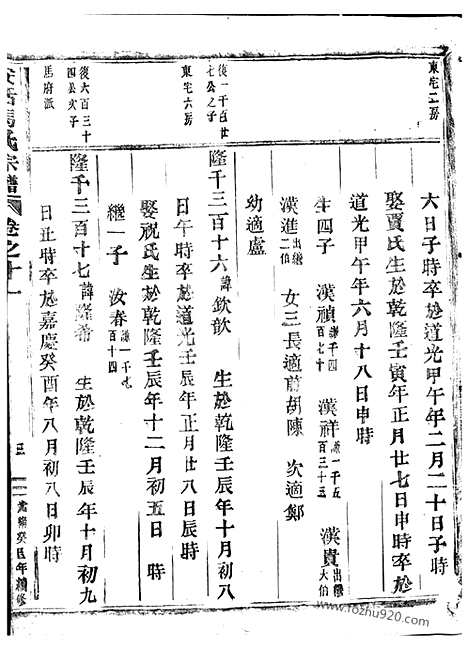 東宅二房
六日子時卒於道光甲午年二月二十日子時
娶賈氏生於乾隆壬寅年正月廿七日申時卒於
道光甲午年六月十八日申時
生四子 漢禎謙千四百七十 漢祥謙一千五百三十五 漢貴出繼大伯
漢進出繼二伯 女三長適前胡陳 次適鄭
幼適盧
後一千一百廿七公之子
東宅六房
隆千三百十六諱欽歆 生於乾隆壬辰年十月初八
日午時卒於道光壬辰年正月廿八日辰時
娶祝氏生於乾隆壬辰年十二月初五日 時
繼一子 汝春謙一千七百十四
後六百三十四公次子
馬府派
隆千三百十七諱隆希 生於乾隆壬辰年十月初九
日丑時卒於嘉慶癸酉年八月初八日卯時
馬氏宗譜 卷之十一
三
光緒癸巳年續修
www.fozhu920.com